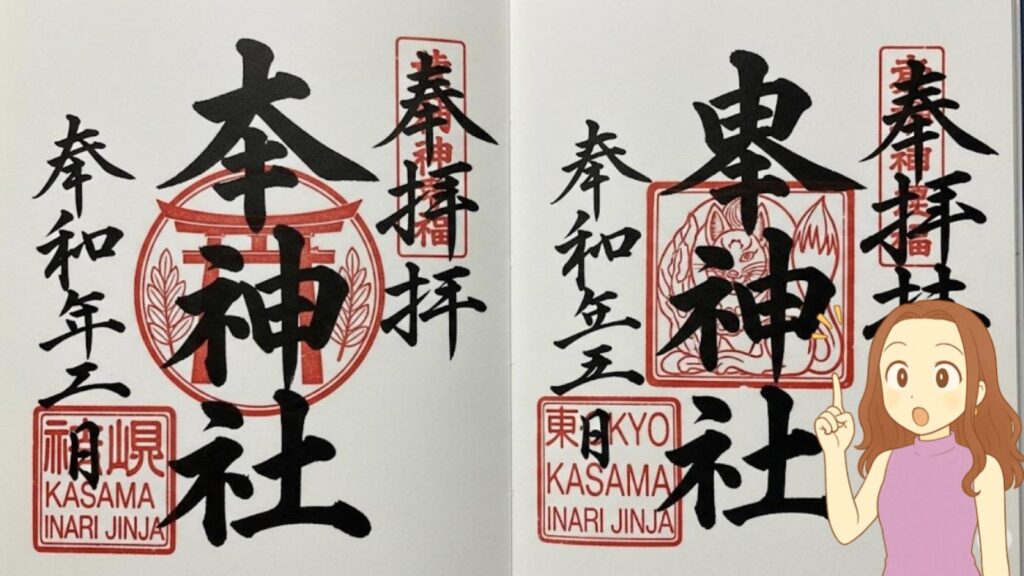 奉拝拝
夲神社
奉和年二月
KASAMA
INARI JINJA
奉拝
神社
奉和
五月
東
KYO
KASAMA
INARI JINJA